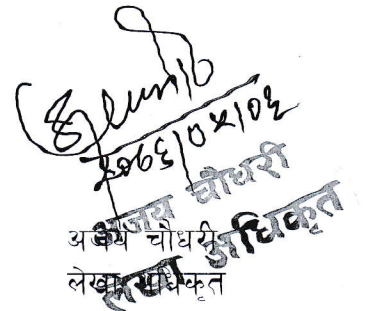 २०७६।०४।०६
अजय चौधरी
लेखा अधिकृत
अजय चौधरी
लेखा अधिकृत